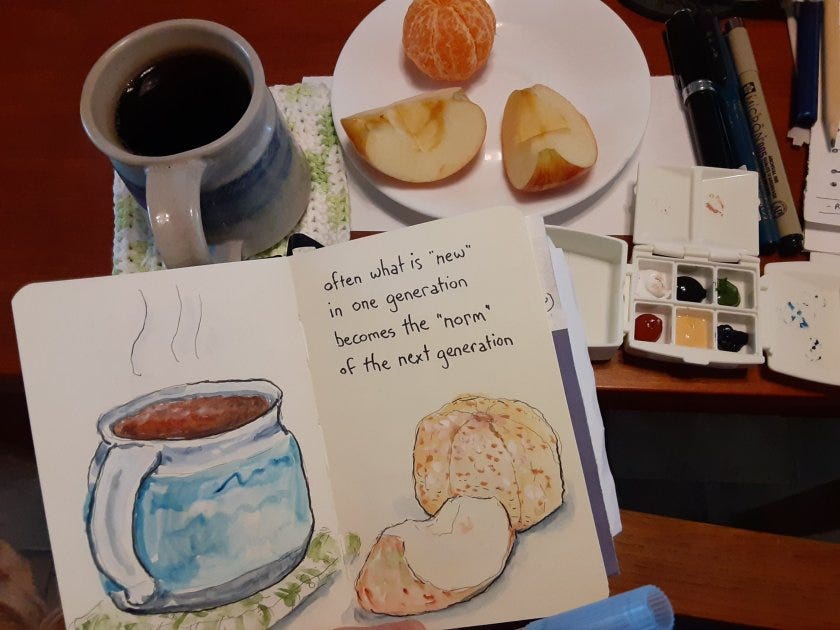 often what is "new"
in one generation
becomes the "norm"
of the next generation
MICRON